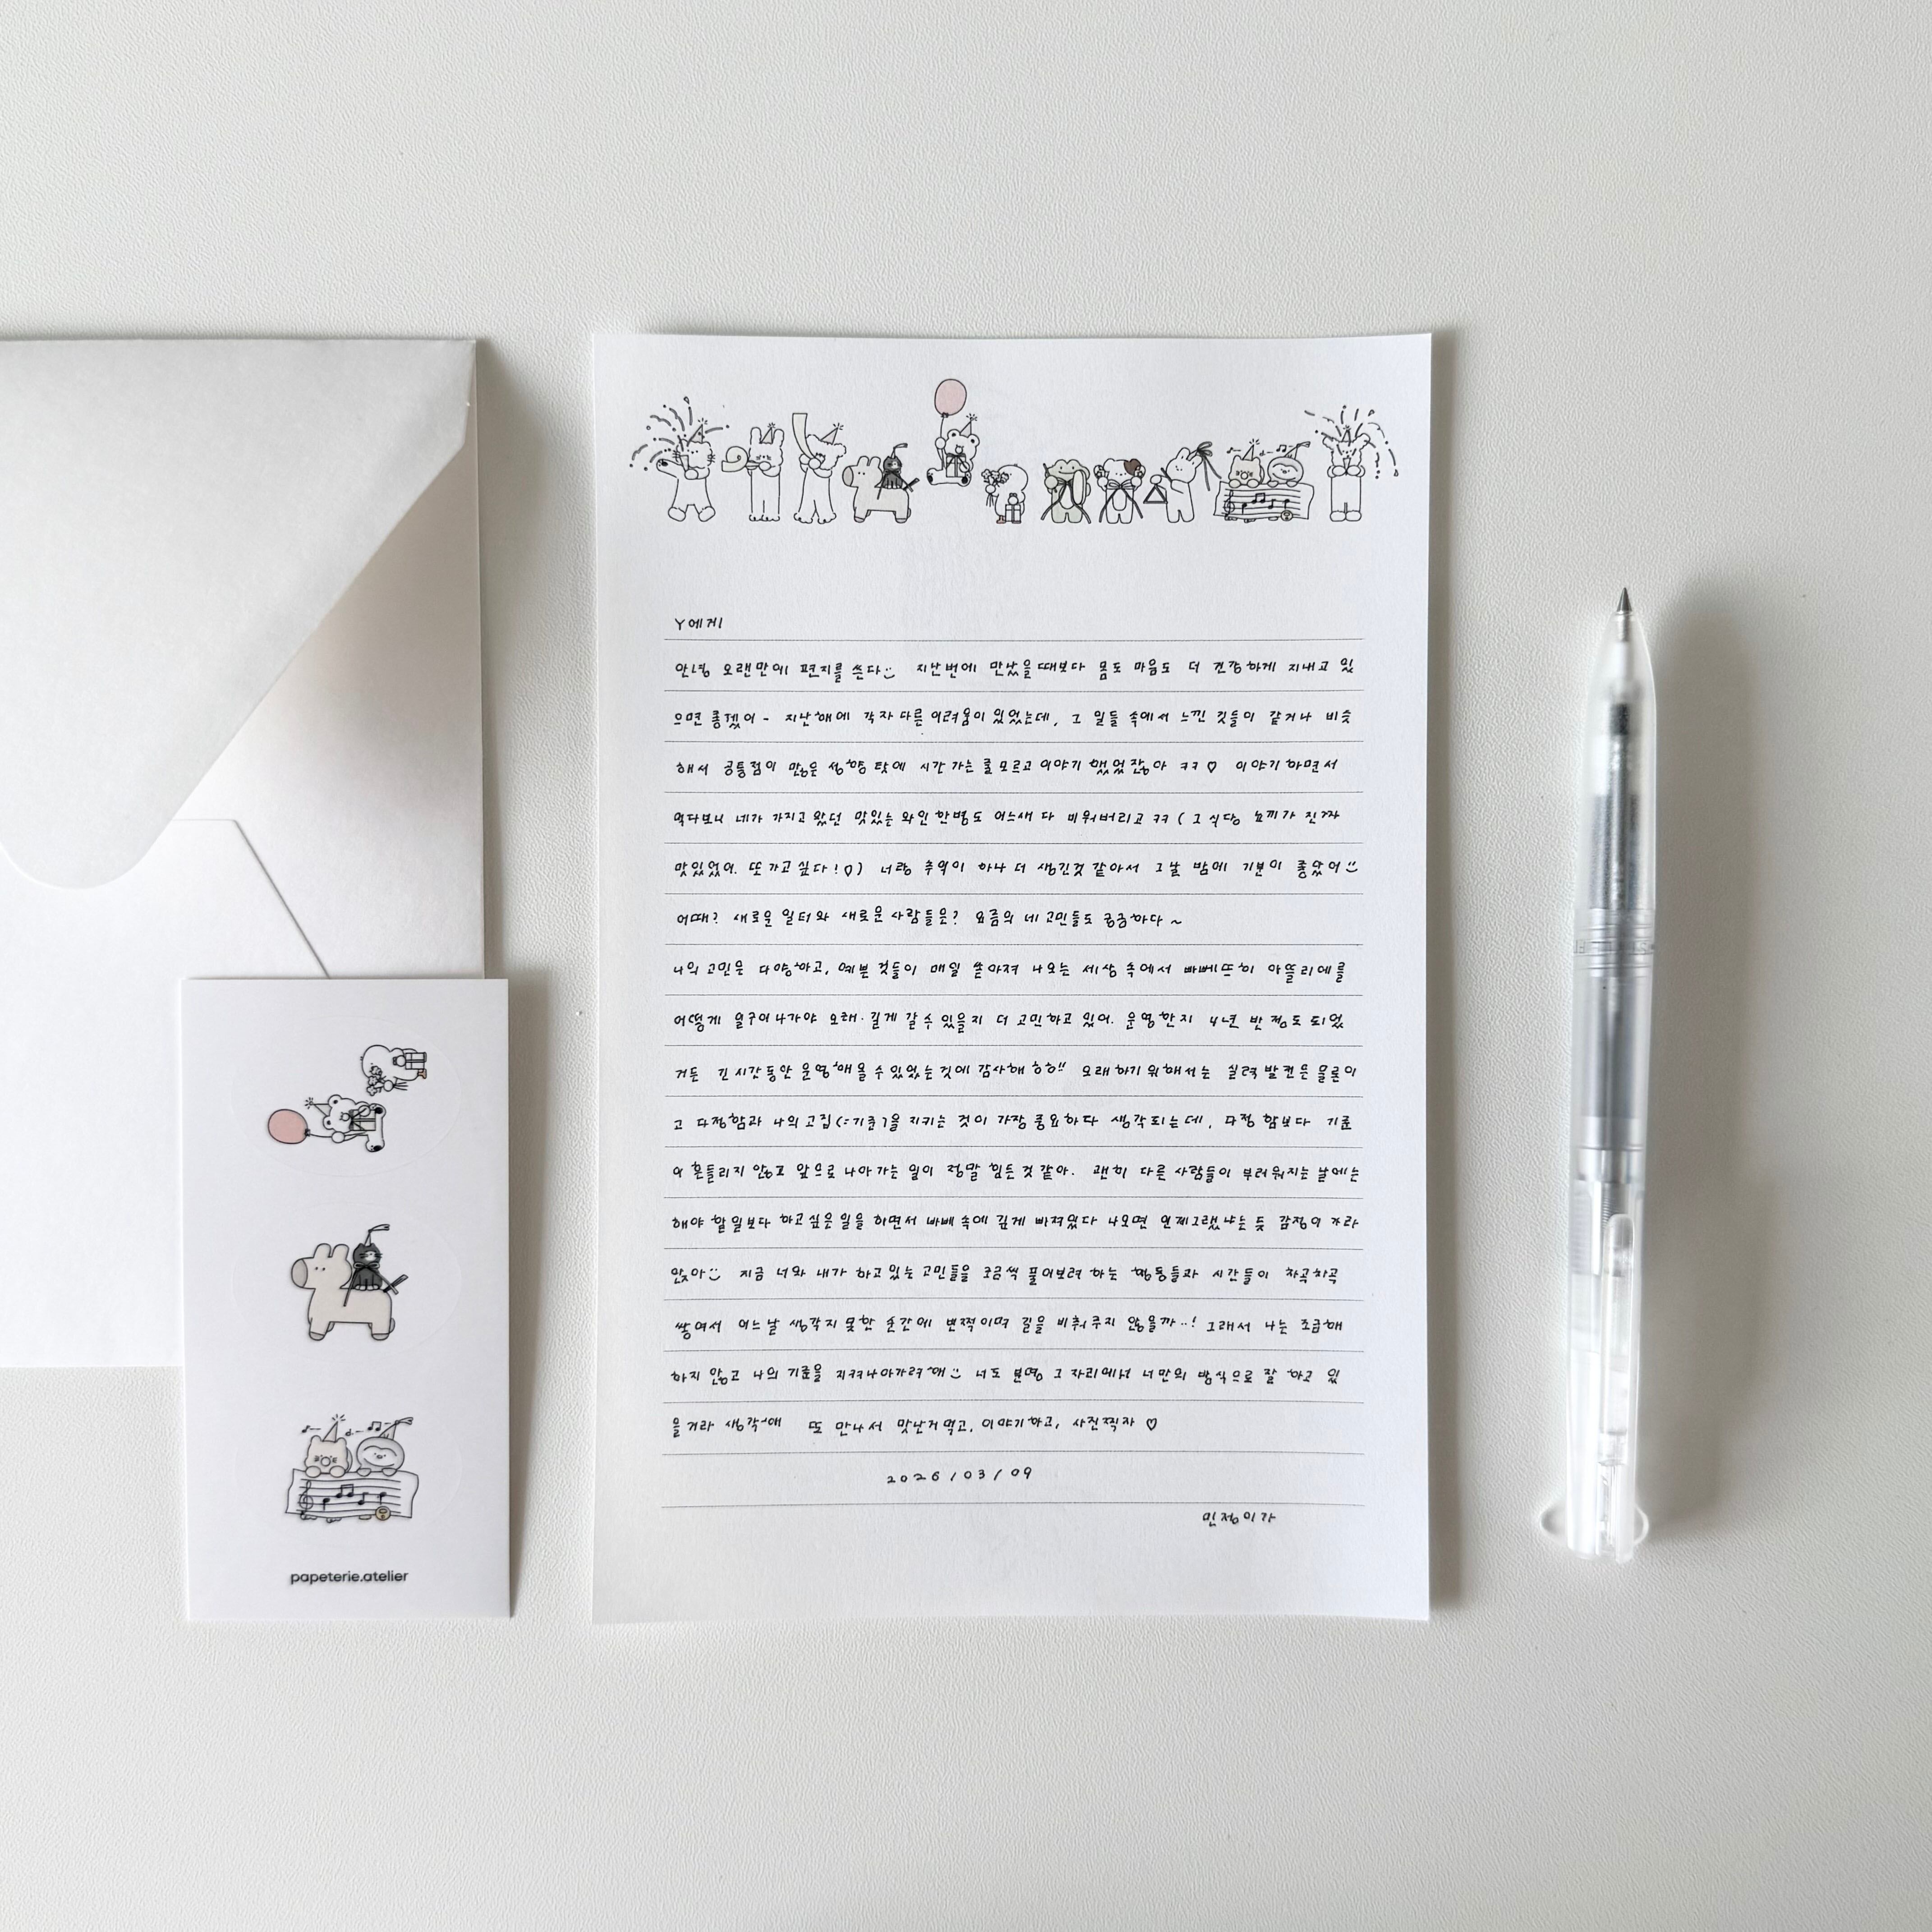 Y에게
안녕 오랜만에 편지를 쓴다 지난번에 만났을때보다 몸도 마음도 더 건강하게 지내고 있
으면 좋겠어 - 지난해에 각자 다른 어려움이 있었는데, 그 일들 속에서 느낀 것들이 같거나 비슷
해서 공통점이 많은 성향 탓에 시간 가는 줄 모르고 이야기 했었잖아 ㅋㅋ♡ 이야기 하면서
먹다보니 네가 가지고 왔던 맛있는 와인 한병도 어느새 다 비워버리고 ㅋㅋ ( 그 식당 뇨끼가 진짜
맛있었어. 또 가고 싶다!♡) 너랑 추억이 하나 더 생긴것 같아서 그날 밤에 기분이 좋았어
어때? 새로운 일터와 새로운 사람들은? 요즘의 네 고민들도 궁금하다 ~
나의 고민은 다양하고, 예쁜 것들이 매일 쏟아져 나오는 세상 속에서 빠뻬뜨히 아뜰리에를
어떻게 일구어나가야 오래·길게 갈 수 있을지 더 고민하고 있어. 운영한지 4년 반 정도 되었
거든 긴 시간동안 운영해올 수 있었는 것에 감사해 항상!! 오래 하기 위해서는 실력 발전은 물론이
고 다정함과 나의 고집(=기준)을 지키는 것이 가장 중요하다 생각되는데, 다정함보다 기준
이 흔들리지 않고 앞으로 나아가는 일이 정말 힘든 것 같아. 괜히 다른 사람들이 부러워지는 날에는
해야 할 일보다 하고싶은 일을 하면서 바빼 속에 깊게 빠져있다 나오면 언제그랬냐는 듯 감정이 가라
앉아 지금 너와 내가 하고 있는 고민들을 조금씩 풀어보려 하는 행동들과 시간들이 차곡차곡
쌓여서 어느날 생각지 못한 순간에 번쩍이며 길을 비춰주지 않을까..! 그래서 나는 조급해
하지 않고 나의 기준을 지켜나아가려 해 너도 분명 그 자리에서 너만의 방식으로 잘 하고 있
을거라 생각해 또 만나서 맛난거 먹고, 이야기하고, 사진찍자 ♡
2026/03/09
민정이가
papeterie.atelier